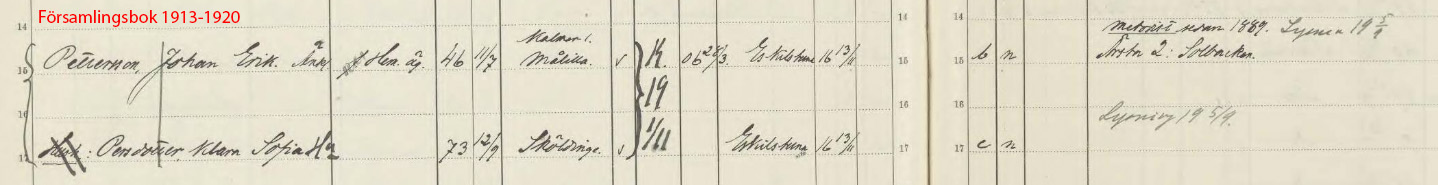 Församlingsbok 1913-1920
14 14 14 metodist sedan 1889. Lysning 19 5/9
Kalmar l.
15 Pettersson, Johan Erik. Änkl Hem. äg. 46 11/7 Målilla. v K. 06 28/3. Eskilstuna 16 13/11 15 15 b n Årsta 2: Solbacken.
16 19 16 16 Lysning 19 5/9.
17 Hush: Persdotter, Klara Sofia Ha 73 12/9 Sköldinge. v 1/11 Eskilstuna 16 13/11 17 17 c n